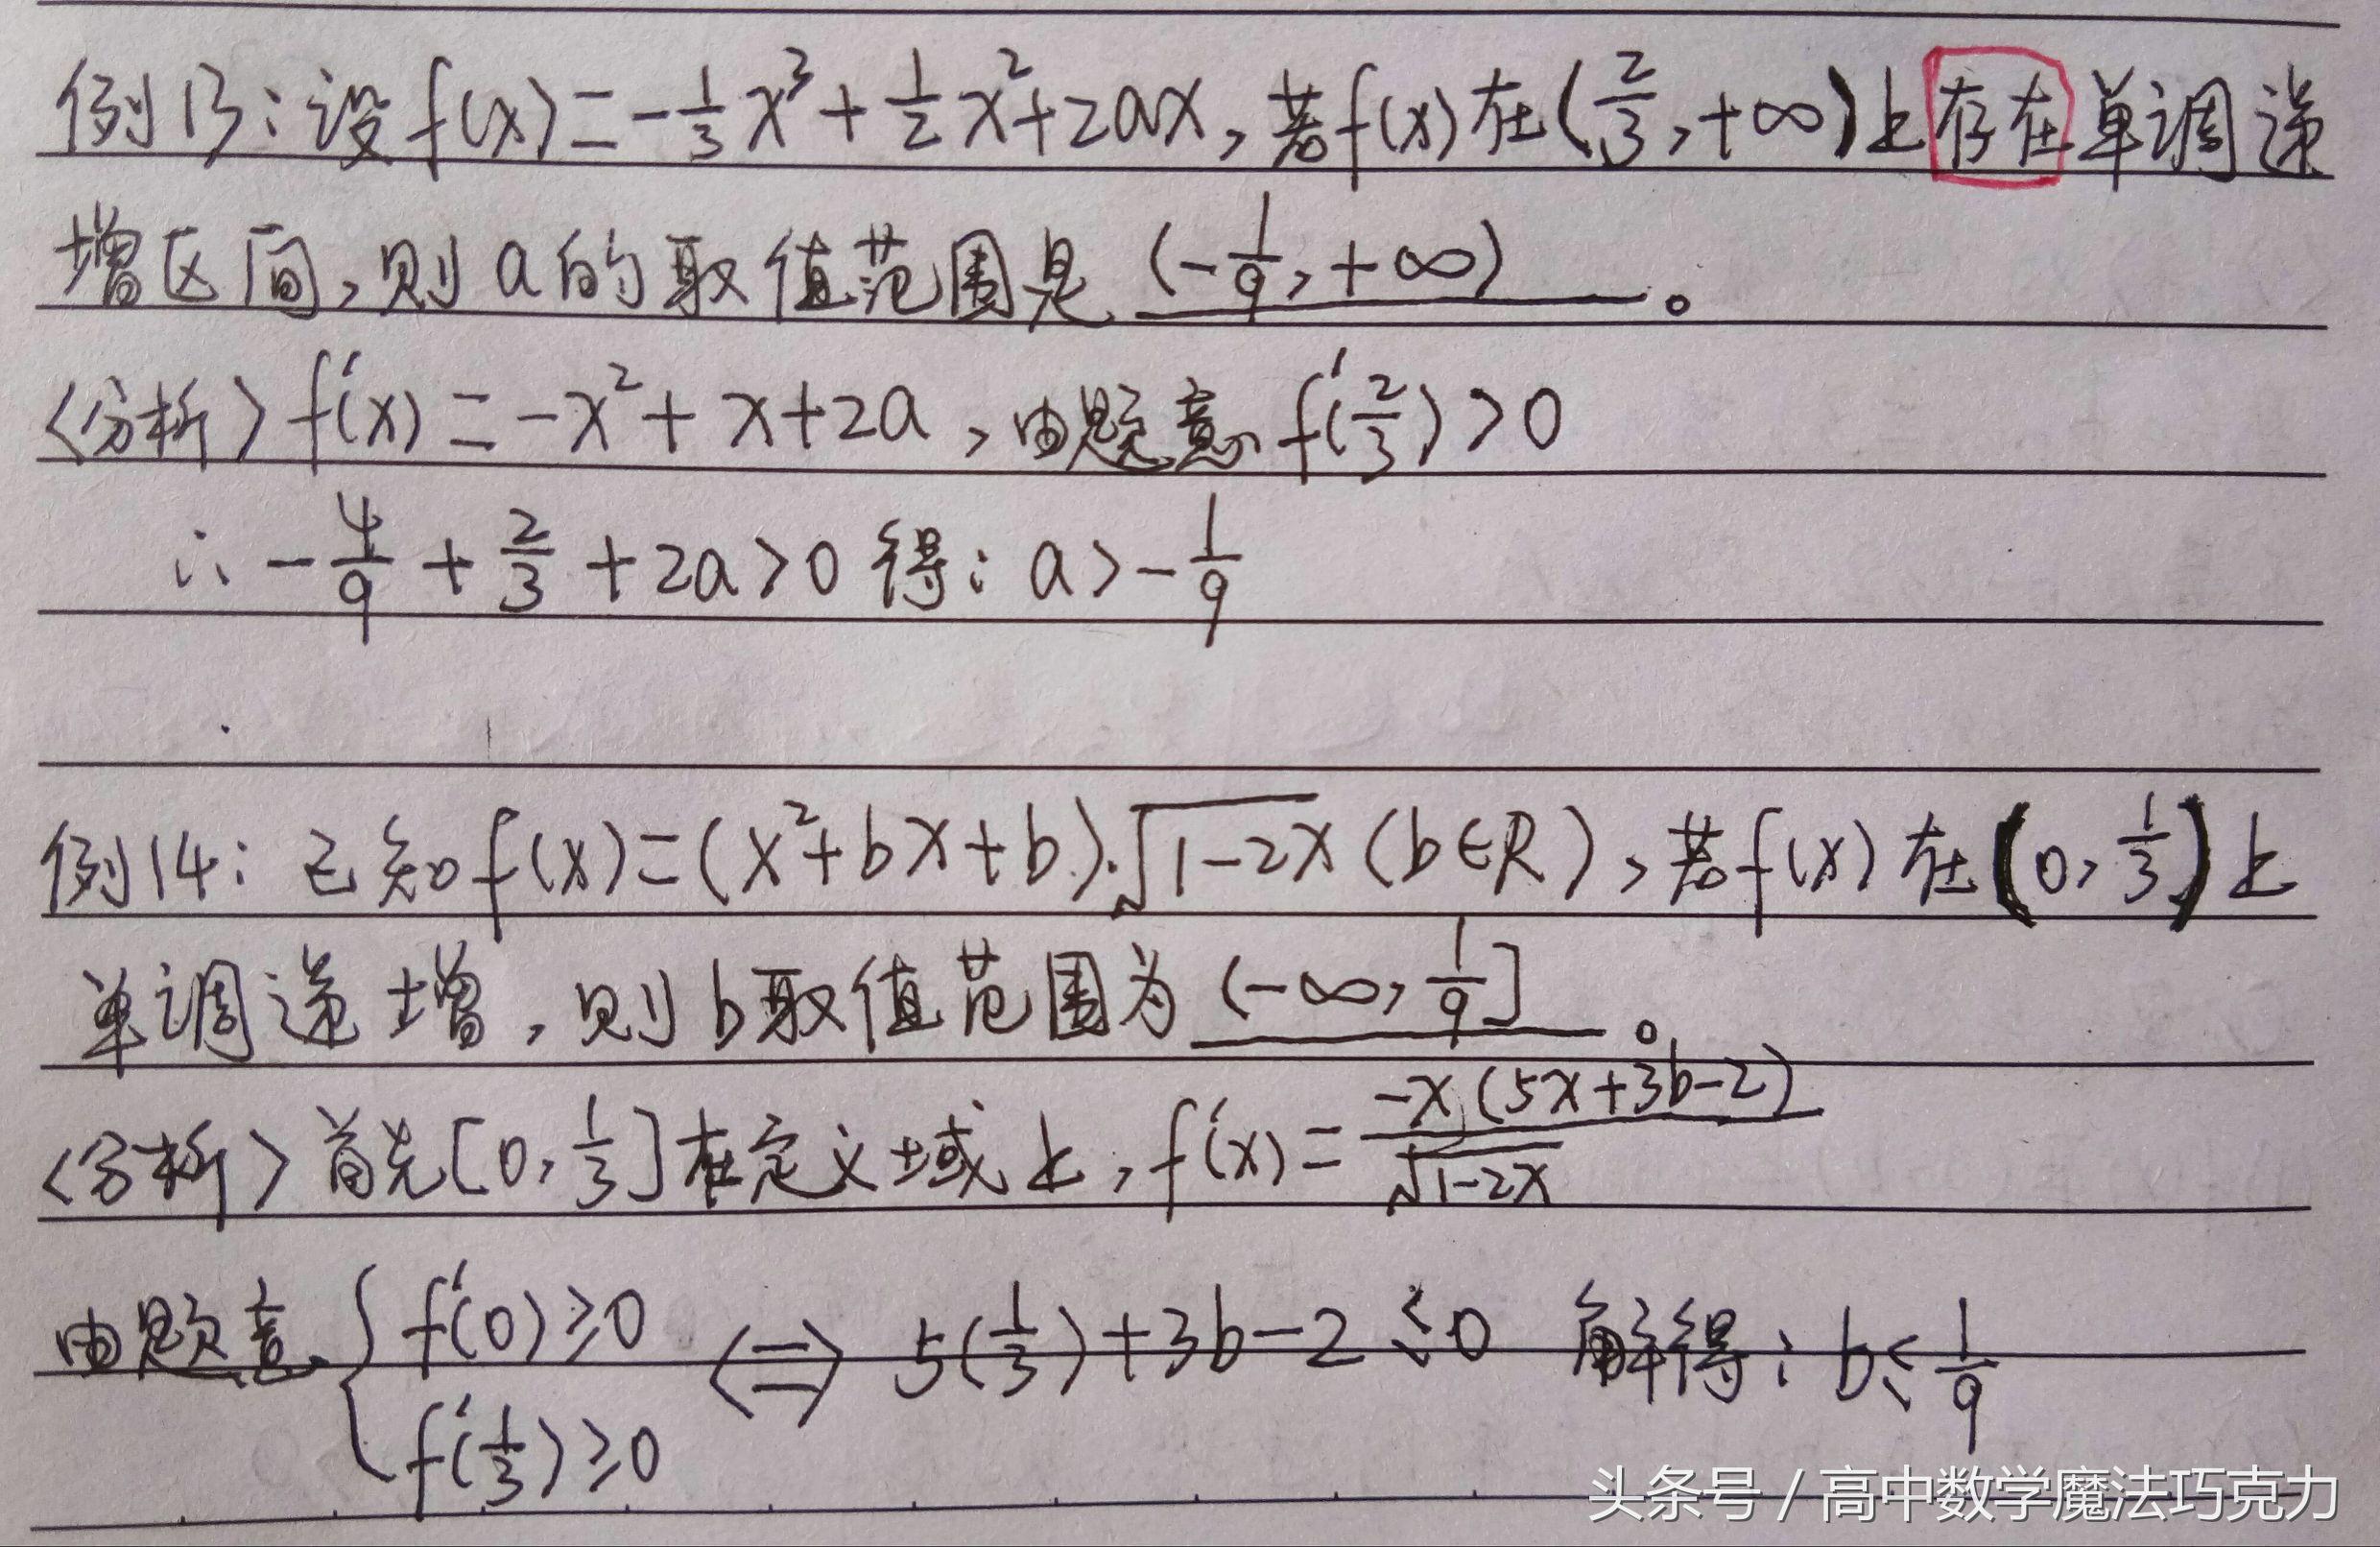 例13：设f(x)=-1/3x³+1/2x²+2ax,若f(x)在(2/3,+∞)上存在单调递
增区间,则a的取值范围是(-1/9,+∞)。
<分析>f'(x)=-x²+x+2a,由题意f'(2/3)>0
∴-4/9+2/3+2a>0得：a>-1/9
例14：已知f(x)=(x²+bx+b)·√1-2x(b∈R),若f(x)在(0,1/3)上
单调递增,则b取值范围为(-∞,1/9]。
<分析>首先[0,1/3]在定义域上,f'(x)=-x(5x+3b-2)/√1-2x
由题意{f'(0)≥0 <=> 5(1/3)+3b-2≤0 解得：b≤1/9
f'(1/3)≥0
头条号/高中数学魔法巧克力